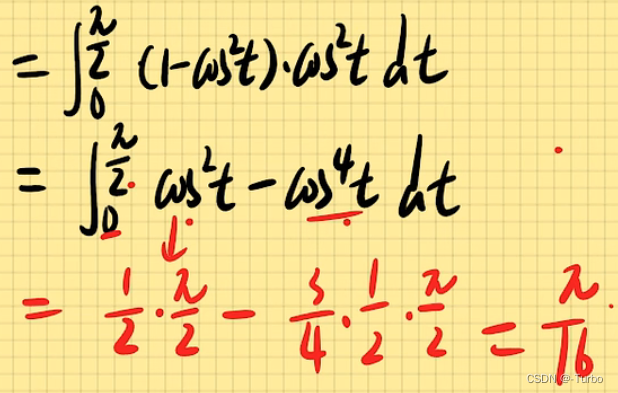 = ∫₀^(π/2) (1-cos²t)·cos²t dt
= ∫₀^(π/2) cos²t - cos⁴t dt
= 1/2 · π/2 - 3/4 · 1/2 · π/2 = π/16
CSDN @-Turbo